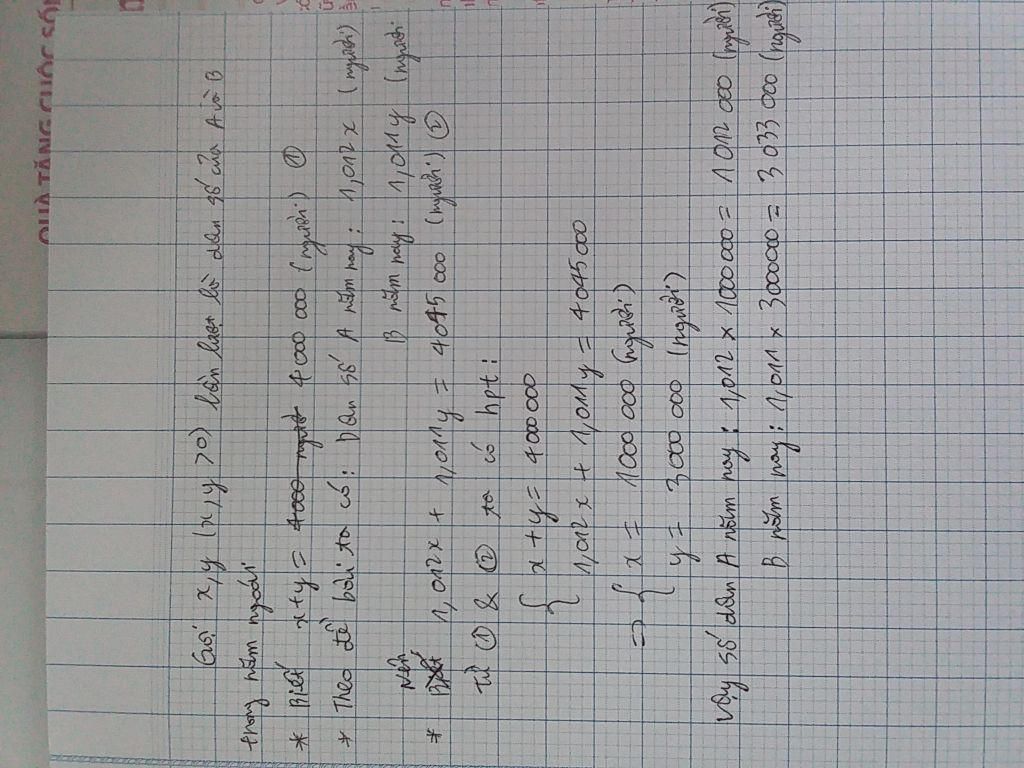 QUÀ TẶNG CUỘC SỐN
Gọi x,y (x,y >0) lần lượt là dân số của A và B
trong năm ngoái
* Biết x+y = 4000 người 4 000 000 (người) ①
* Theo đề bài ta có: Dân số A năm nay: 1,012x (người)
B năm nay: 1,011y (người
Nên
* Biết 1,012x + 1,011y = 4045 000 (người) ②
Từ ① & ② ta có hpt:
{ x+y= 4000000
1,012x + 1,011y = 4045000
=> { x = 1 000 000 (người)
y = 3000 000 (người)
Vậy số dân A năm nay: 1,012 x 1000000 = 1 012 000 (người)
B năm nay: 1,011 x 3000000 = 3 033 000 (người)